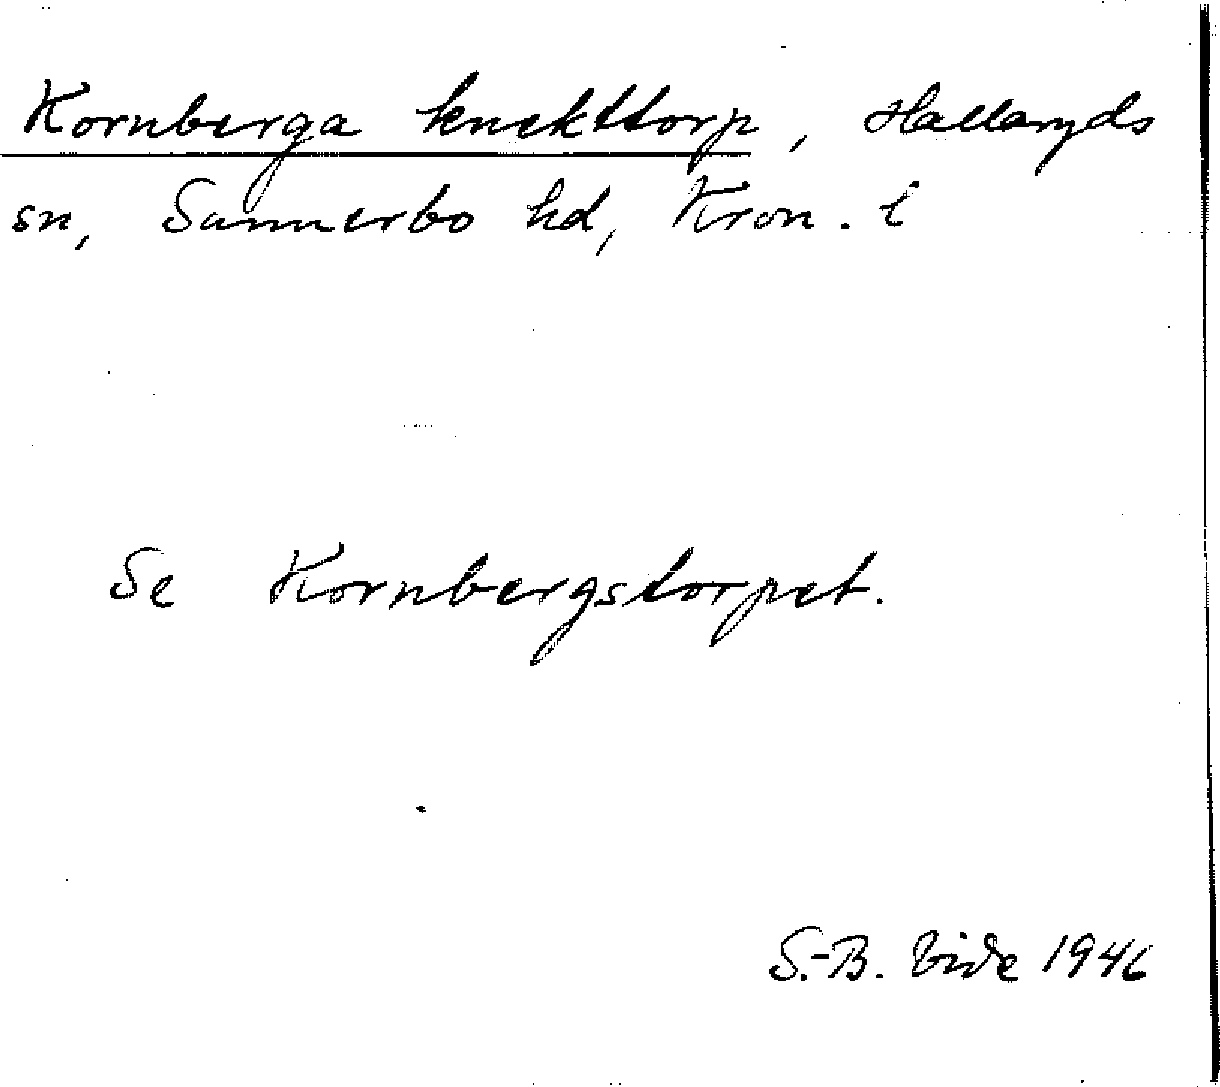 Kornberga knekttorp, Hallaryds
sn, Sunnerbo hd, Kron. l
Se Kornbergstorpet.
S.-B. Vide 1946